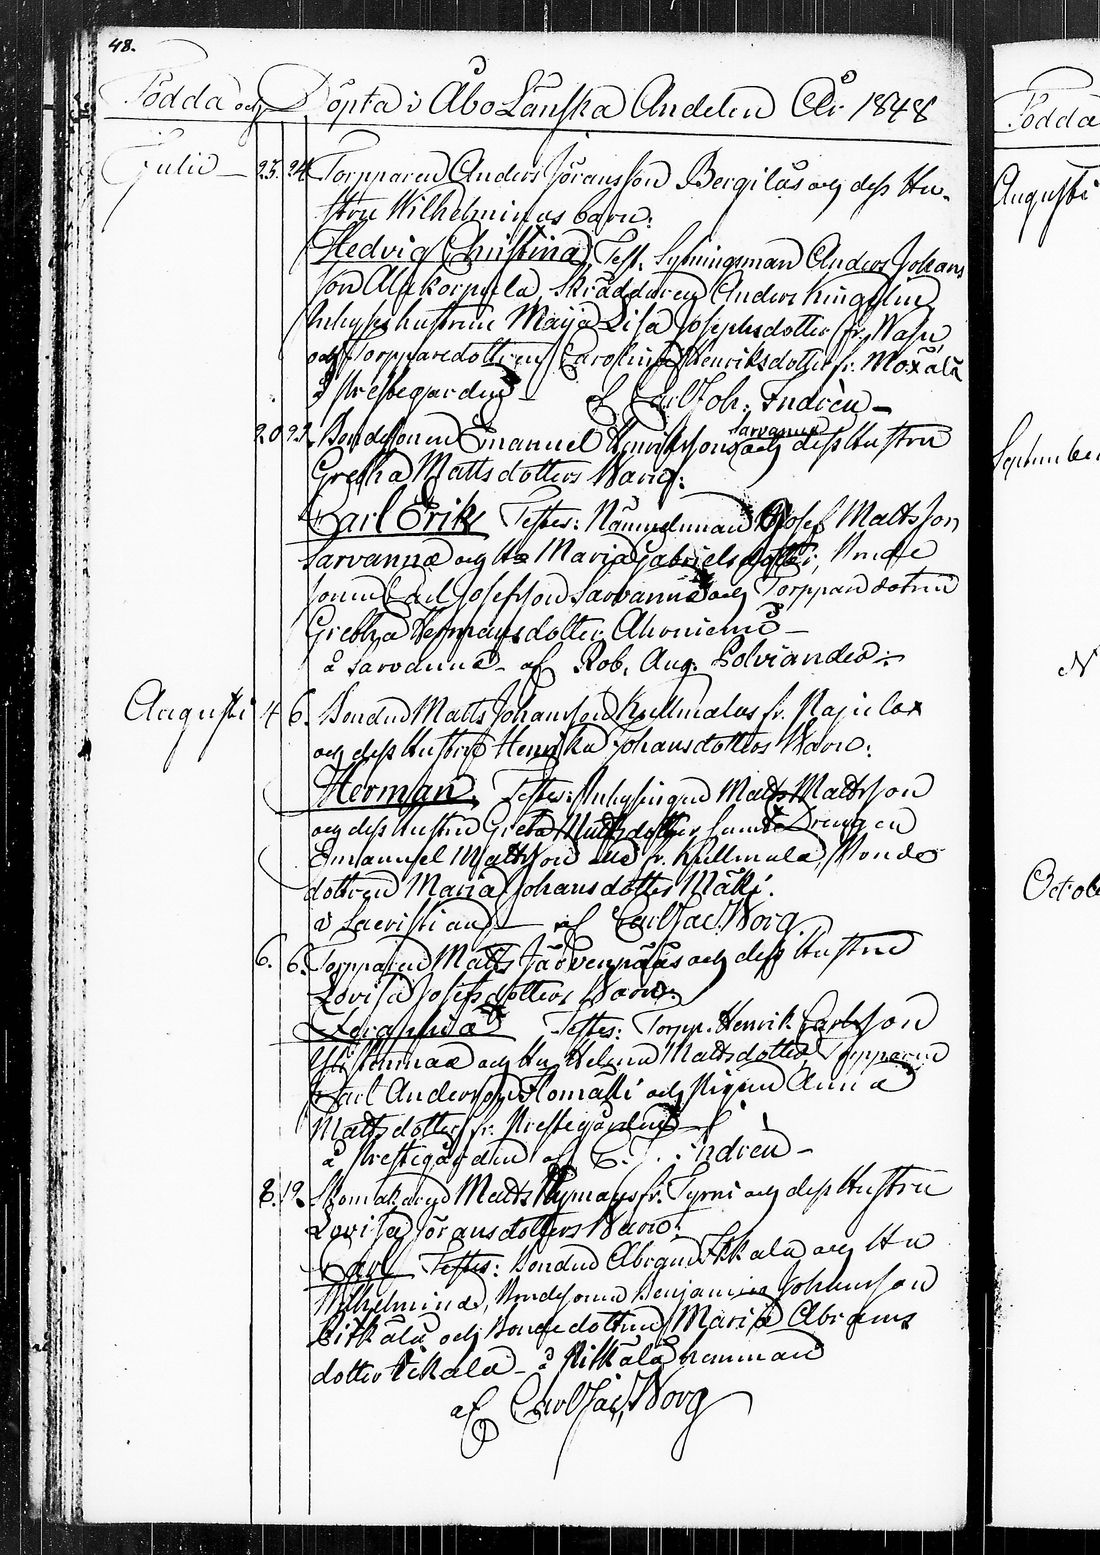 48.
Födda och Döpta i Åbo Länska Andelen År 1848
Julii 23. 24. Torpparen Anders Jöransson Bergilås och dess Hu-
stru Wilhelminas barn:
Hedvig Christina, Test: Sytningsman Anders Johans
son Alakorpela, Skräddaren Anders Kingelin,
Inhyses hustrun Maija Lisa Josephsdotter fr.
och Torpparedottren Carolina Henriksdotter fr.
å Prestegården af Carl Joh. Indrèn
20 23. Bondesonen Emanuel Henrikssons Sarvanne och dess Hustru
Gretha Mattsdotters Barn:
Carl Erik Testes: Nämndeman Josef Mattsson
Sarvanne och H. Maria Gabrielsdotter, Bonde
sonen Carl Josefsson Sarvanne och Torppardottren
Gretha Hermansdotter Ahoniemi
å Sarvanne af Rob. Aug. Polviander
Augusti 4 6. Bonden Matts Johansson Kullmalas fr.
och dess Hustru Henrika Johansdotters Barn:
Herman, Testes: Inhysingen Matts Mattsson
och dess Hustru Greta Mattsdotter samt Drengen
Emanuel Mattsson fr. Kullmala, Bonde
dottren Maria Johansdotter Mäki.
i Sacristian af Carl Jac. Borg
6. 6. Torpparen Matts Järvenpääs och dess Hustru
Lovisa Josefsdotters Barn:
Seraphia Testes: Torpp. Henrik Carlsson
och Hu. Helena Mattsdotter, Torpparen
Carl Andersson och Pigan Anna
Mattsdotter fr. Prestegården
å Prestegården af C. J. Indrèn
8. 12 Skomakaren Matts Nymans fr. Tyrni och dess Hustru
Lovisa Jöransdotters Barn:
Carl Testes: Bonden Abram Ikkala och Hu
Wilhelmina, Bondesonen Benjamin Johansson
Pitkälä och Bondedottren Maria Abrams
dotter Ikkala å Pitkälä hemman
af Carl Jac. Borg
Födda
Augusti
September
N
Octob